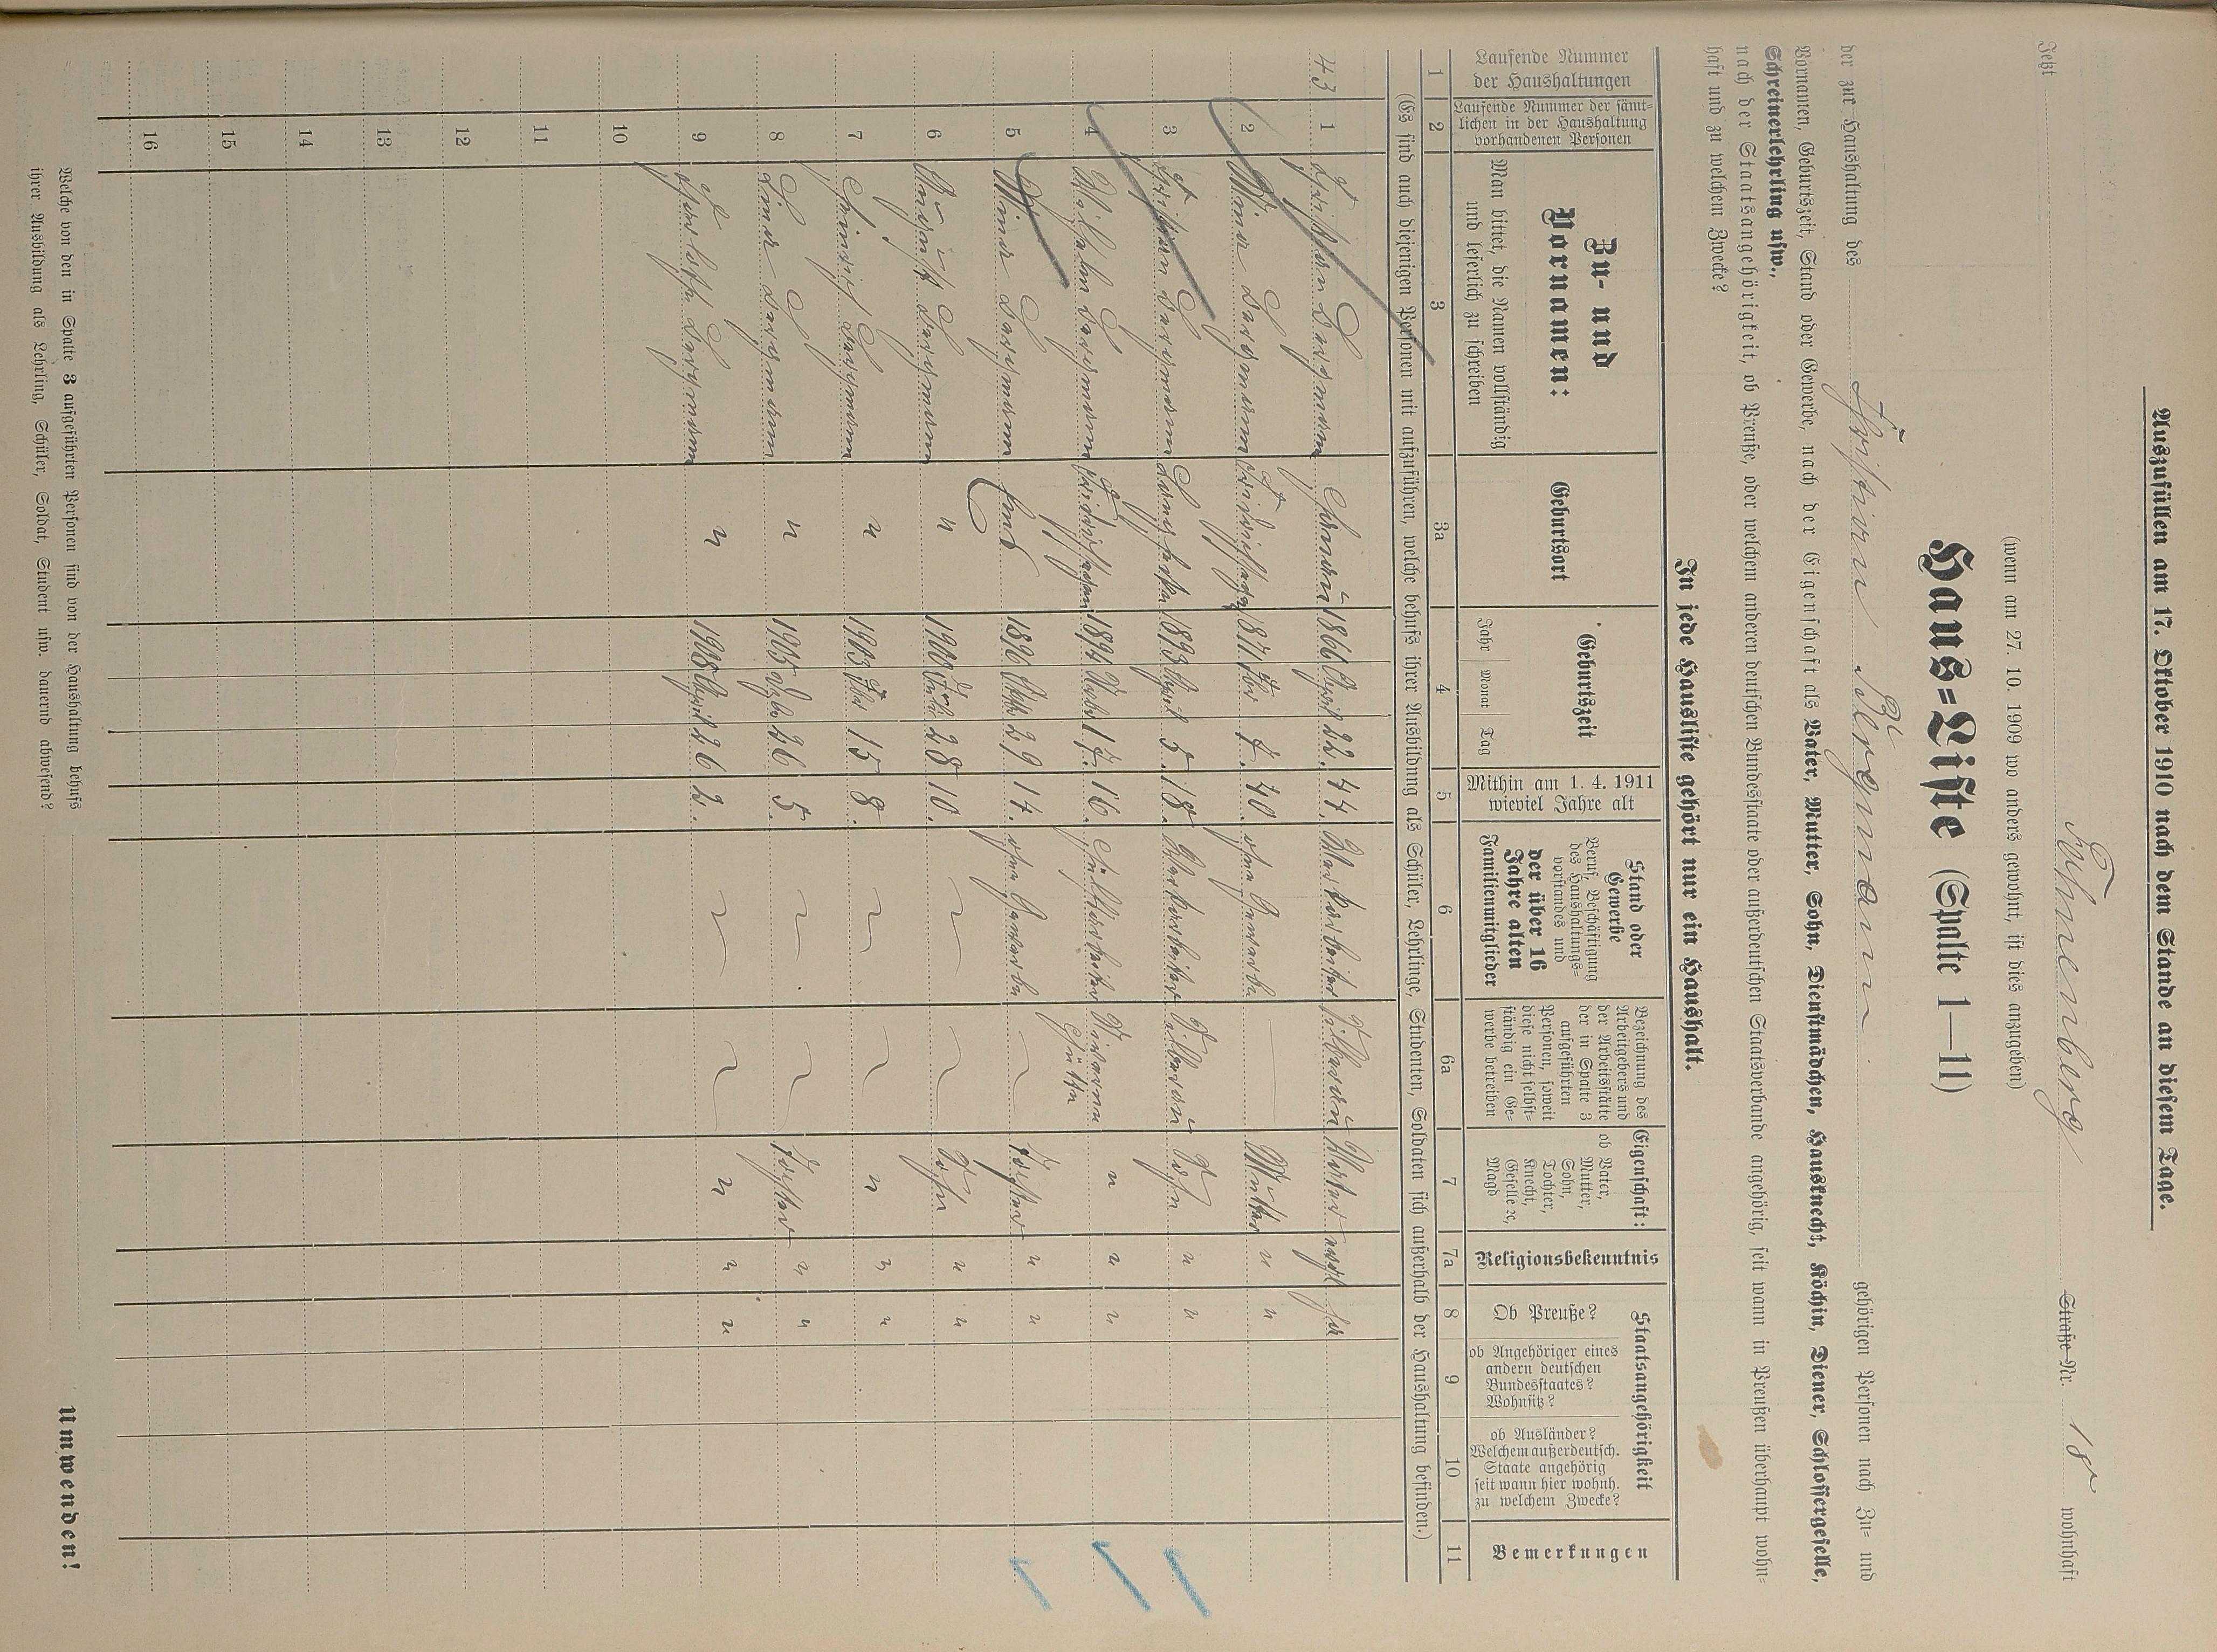 Auszufüllen am 17. Oktober 1910 nach dem Stande an diesem Tage.
Jetzt Sonnenberg Straße Nr. 18 wohnhaft
(wenn am 27. 10. 1909 wo anders gewohnt, ist dies anzugeben)
Haus=Liste (Spalte 1—11)
der zur Haushaltung des Bergmann gehörigen Personen nach Zu= und
Vornamen, Geburtszeit, Stand oder Gewerbe, nach der Eigenschaft als Vater, Mutter, Sohn, Dienstmädchen, Hausknecht, Köchin, Diener, Schlossergeselle,
Schreinerlehrling usw.,
nach der Staatsangehörigkeit, ob Preuße, oder welchem anderen deutschen Bundesstaate oder außerdeutschen Staatsverbande angehörig, seit wann in Preußen überhaupt wohn=
haft und zu welchem Zwecke?
In jede Hausliste gehört nur ein Haushalt.
Laufende Nummer der Haushaltungen
Laufende Nummer der sämt=lichen in der Haushaltung vorhandenen Personen
Zu- und Vornamen:
Man bittet, die Namen vollständig und leserlich zu schreiben
Geburtsort
Geburtszeit
Jahr Monat Tag
Mithin am 1. 4. 1911 wieviel Jahre alt
Stand oder Gewerbe
Beruf, Beschäftigung des Haushaltungs=vorstandes und
der über 16 Jahre alten Familienmitglieder
Bezeichnung des Arbeitgebers und der Arbeitsstätte der in Spalte 3 aufgeführten Personen, soweit diese nicht selbst=ständig ein Ge=werbe betreiben
Eigenschaft:
ob Vater, Mutter, Sohn, Tochter, Knecht, Geselle ec, Magd
Religionsbekenntnis
Staatsangehörigkeit
Ob Preuße?
ob Angehöriger eines andern deutschen Bundesstaates? Wohnsitz?
ob Ausländer? Welchem außerdeutsch. Staate angehörig seit wann hier wohnh. zu welchem Zwecke?
Bemerkungen
1 2 3 3a 4 5 6 6a 7 7a 8 9 10 11
(Es sind auch diejenigen Personen mit aufzuführen, welche behufs ihrer Ausbildung als Schüler, Lehrlinge, Studenten, Soldaten sich außerhalb der Haushaltung befinden.)
43 1 Bergmann 1866 April 22. 44. Vater ja
2 Mina Bergmann 1871 7. 40. ohne Gewerbe Mutter " "
3 Bergmann 1893 April 5. 18. Sohn " "
4 Wilhelm Bergmann 1894 17. 16. " " "
5 Mina Bergmann 1896 29 14. ohne Gewerbe Tochter " "
6 August Bergmann " 1900 28 10. Sohn " "
7 Heinrich Bergmann " 1903 15 8. " " "
8 Lina Bergmann " 1905 26 5. Tochter " "
9 Bergmann " 1908 April 26 2. " " "
10
11
12
13
14
15
16
Welche von den in Spalte 3 aufgeführten Personen sind von der Haushaltung behufs
ihrer Ausbildung als Lehrling, Schüler, Soldat, Student usw. dauernd abwesend?
Umwenden!